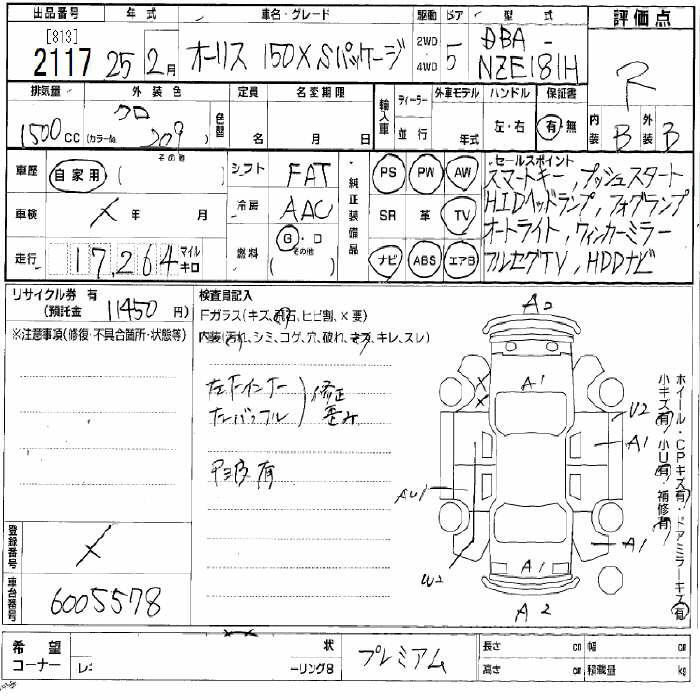 出品番号 年式 車名・グレード 駆動 ドア 型式 評価点
[813]
2117 25 2月 オーリス 150X Sパッケージ 2WD 4WD 5 DBA - NZE181H R
排気量 外装色 定員 名変期限 輸入車 ディーラー 並行 外車モデル 年式 ハンドル 左・右 保証書 有 無 内装 B 外装 B
1500cc クロ (カラーNo. 209) 色替 名 月 日
車歴 自家用 ( その他 ) シフト FAT 純正装備品 PS PW AW セールスポイント
スマートキー, プッシュスタート
車検 × 年 月 冷房 AAC SR 革 TV HIDヘッドランプ, フォグランプ
オートライト, ウィンカーミラー
走行 17,264 マイル キロ 燃料 G・ロ その他 ( ) ナビ ABS エアB フルセグTV, HDDナビ
リサイクル券 有 (預託金 11450 円) 検査員記入
Fガラス(キズ, 飛石, ヒビ割, ×要)
※注意事項(修復・不具合箇所・状態等) 内装(汚れ, シミ, コゲ, 穴, 破れ, キズ, キレ, スレ)
A2
A1
左Fインナー 修正
歪み
U2
A1
有
AU1
A1
U2
A1
A2
ホイール・CPキズ有・ドアミラーキズ有
小キズ有・小U有・補修有
登録番号 ×
車台番号 6005578
希望コーナー 状 プレミアム 長さ cm 幅 cm
ーリング8 高さ cm 積載量 kg